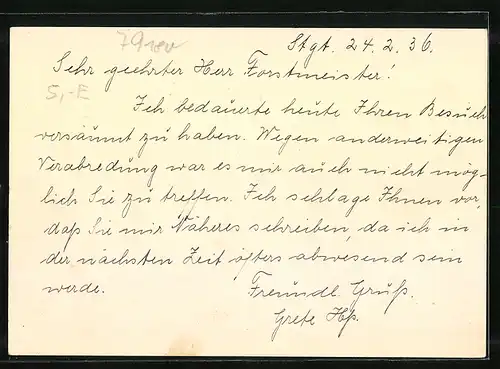 79 rev
Stgt. 24. 2. 36.
Sehr geehrter Herr Forstmeister!
5,-E
Ich bedauerte heute Ihren Besuch
versäumt zu haben. Wegen anderweitigen
Verabredung war es mir auch nicht mög-
lich Sie zu treffen. Ich schlage Ihnen vor,
daß Sie mir Näheres schreiben, da ich in
der nächsten Zeit öfters abwesend sein
werde.
Freundl. Gruß.
Grete